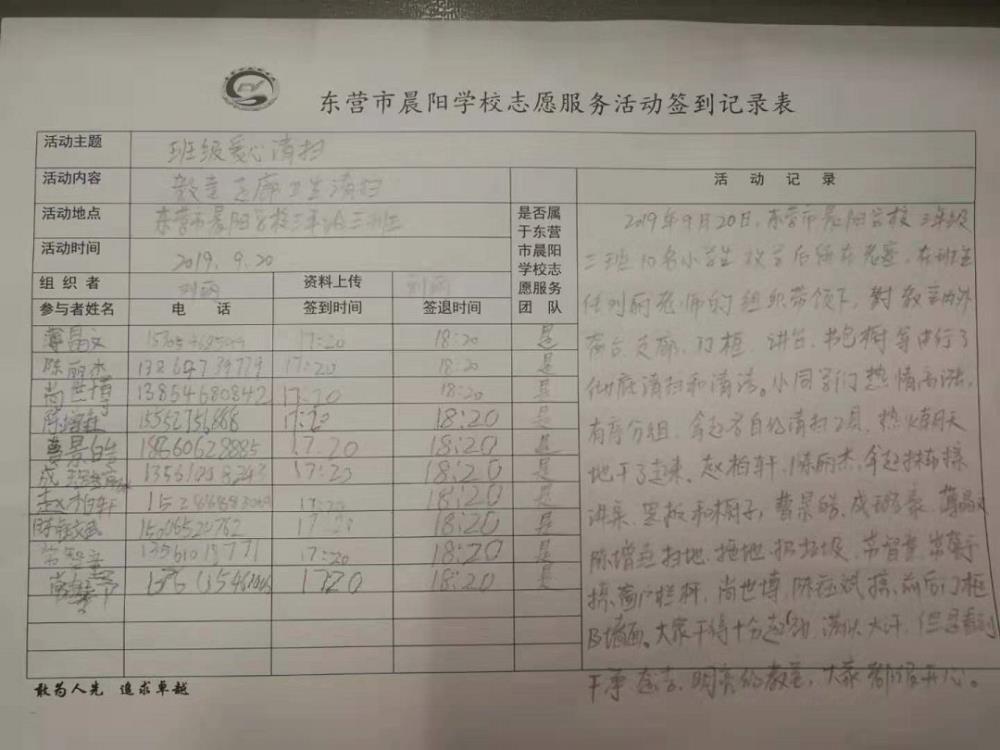 东营市晨阳学校志愿服务活动签到记录表
活动主题 班级爱心清扫
活动内容 教室走廊卫生清扫
活动地点 东营市晨阳学校三年级三班
活动时间 2019.9.20
组织者 刘丽 资料上传 刘丽
是否属于东营市晨阳学校志愿服务团队
参与者姓名 电话 签到时间 签退时间
薄昌文 17:20 18:20 是
陈丽杰 17:20 18:20 是
尚世博 13854680842 17:20 18:20 是
17:20 18:20 是
曹景皓 18660628885 17:20 18:20 是
17:20 18:20 是
赵柏轩 17:20 18:20 是
17:20 18:20 是
17:20 18:20 是
17:20 18:20 是
活动记录
2019年9月20日,东营市晨阳学校三年级
三班10名小学生放学后留在教室,在班主
任刘丽老师的组织带领下,对教室内外
窗台、走廊、门框、讲台、书包橱等进行了
彻底清扫和清洁。小同学们热情高涨,
有序分组,拿起各自的清扫工具,热火朝天
地干了起来。赵柏轩、陈丽杰拿起抹布擦
讲桌、黑板和橱子,曹景皓、薄昌文
扫地、拖地、扫垃圾,
擦窗户栏杆,尚世博、擦前后门框
及墙面。大家干得十分起劲,满头大汗,但是看到
干净整洁、明亮的教室,大家都很开心。
敢为人先 追求卓越